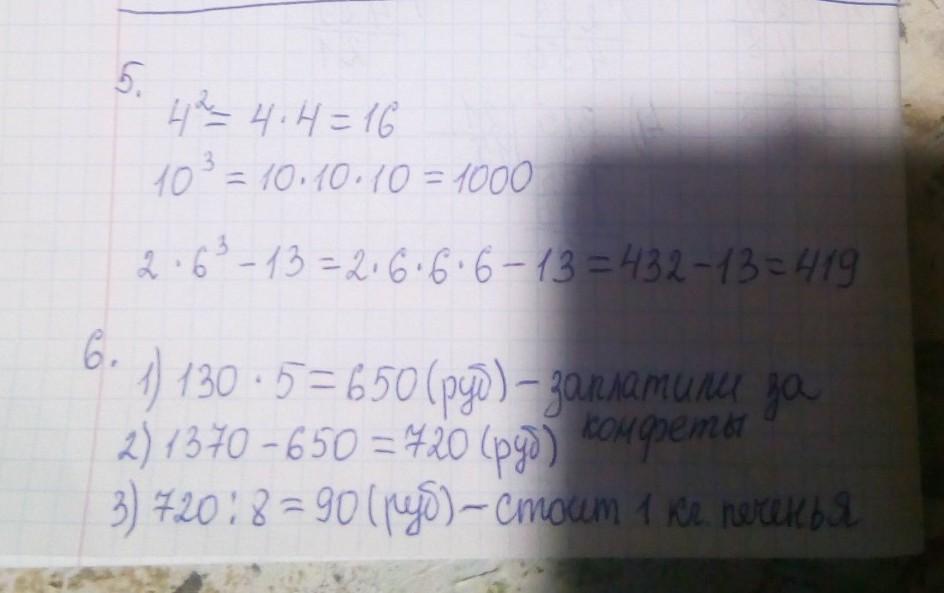 5.
4² = 4 · 4 = 16
10³ = 10 · 10 · 10 = 1000
2 · 6³ – 13 = 2 · 6 · 6 · 6 – 13 = 432 – 13 = 419
6.
1) 130 · 5 = 650 (руб) – заплатили за
конфеты
2) 1370 – 650 = 720 (руб)
3) 720 : 8 = 90 (руб) – стоит 1 кг. печенья